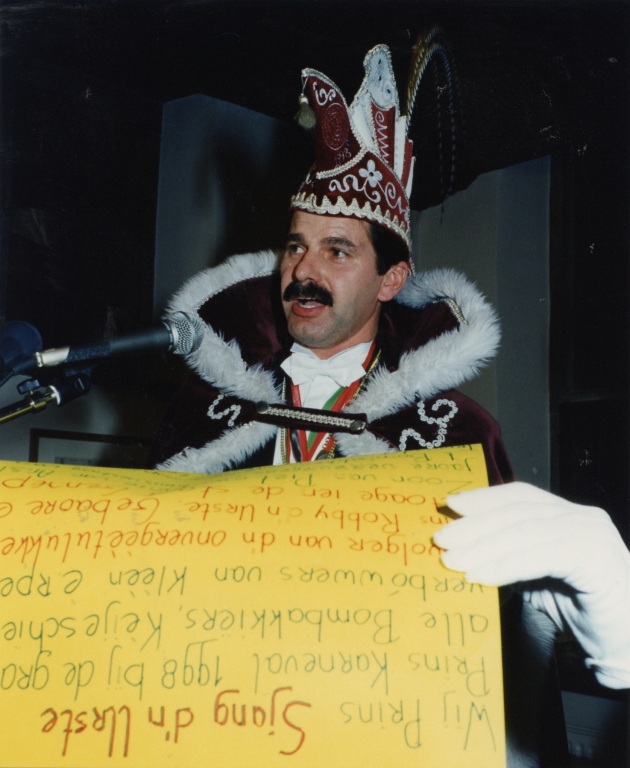 Wij Prins Sjang d'n Urste
Prins Karneval 1998 bij de gra
alle Bombakkiërs, Keijeschie
verbôwwers van Kleën Erpe
volger van d'n onvergeëtulukke
ins Robby d'n Urste. Gebaore
Hoage ien de St.
Zoon van Piet